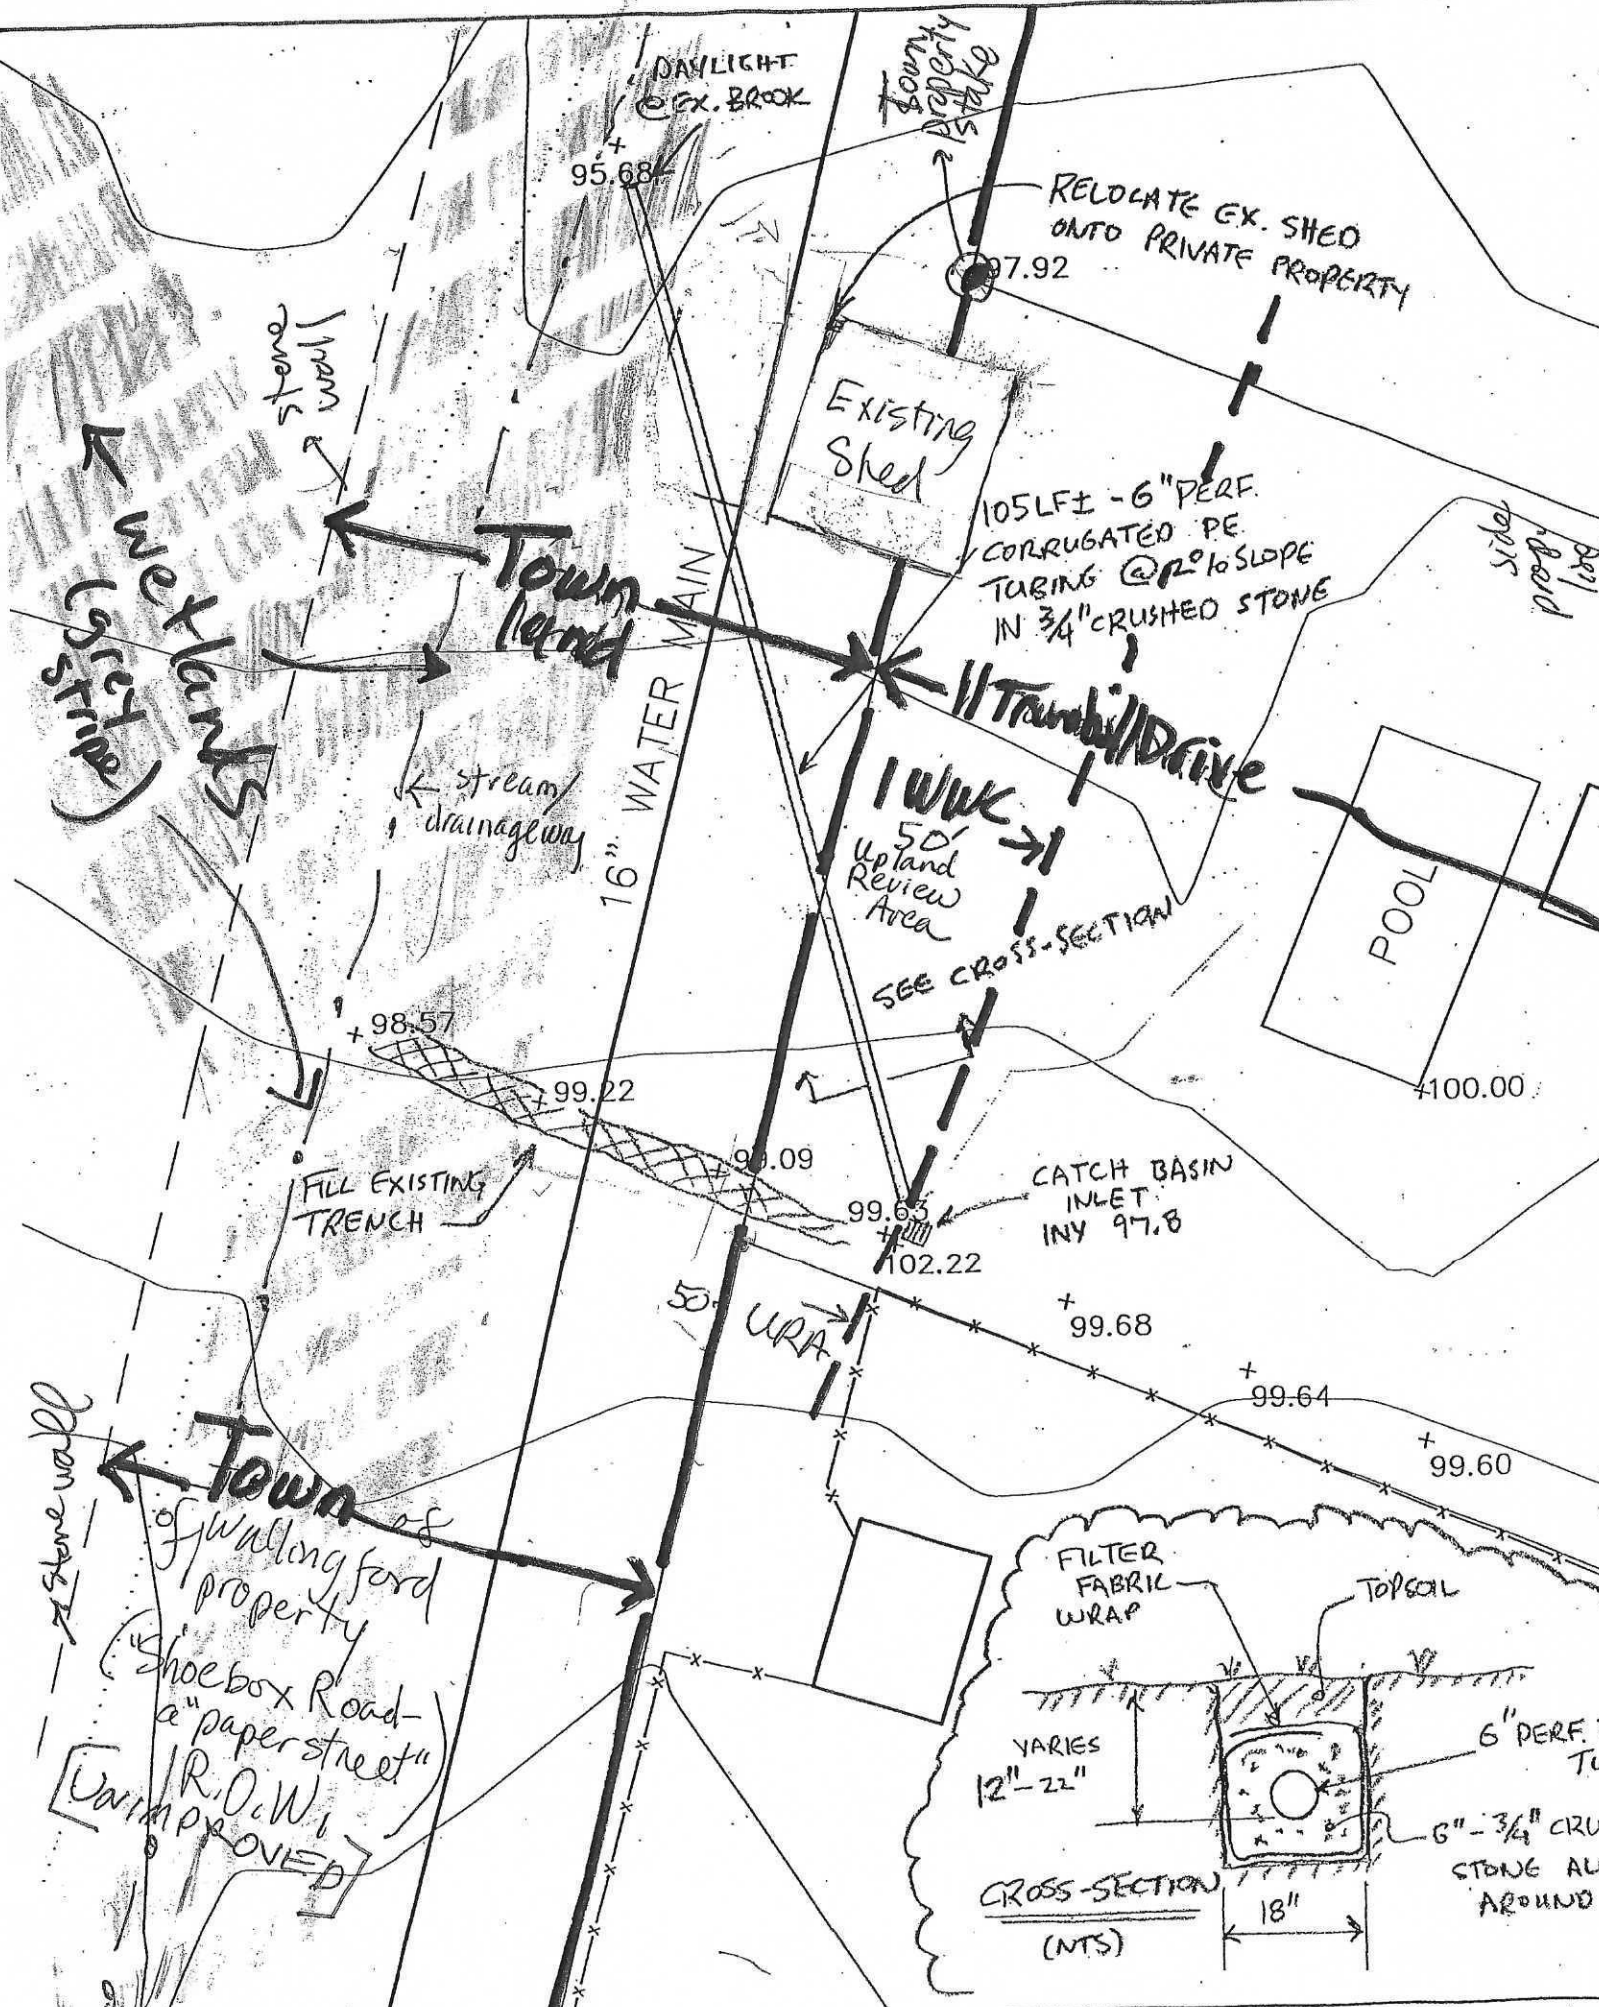 DAYLIGHT
@ EX. BROOK
95.68
Town
property
stake
RELOCATE EX. SHED
ONTO PRIVATE PROPERTY
97.92
stone
wall
Existing
Shed
105 LF± - 6" PERF.
CORRUGATED PE
TUBING @ 2% SLOPE
IN 3/4" CRUSHED STONE
side
prop
wetlands
(grey
stripe)
Town
land
16" WATER MAIN
11 Trumbull Drive
stream/
drainageway
IWWC
50'
Upland
Review
Area
POOL
SEE CROSS-SECTION
98.57
99.22
100.00
99.09
FILL EXISTING
TRENCH
99.63
102.22
CATCH BASIN
INLET
INV 97.8
50
URA
99.68
99.64
99.60
Stone wall
Town
of Wallingford
property
("Shoebox Road-
a "paper street"
R.O.W.)
[UNIMPROVED]
FILTER
FABRIC
WRAP
TOPSOIL
VARIES
12"-22"
6" PERF.
6"-3/4" CRU
STONE AL
AROUND
CROSS-SECTION
(NTS)
18"